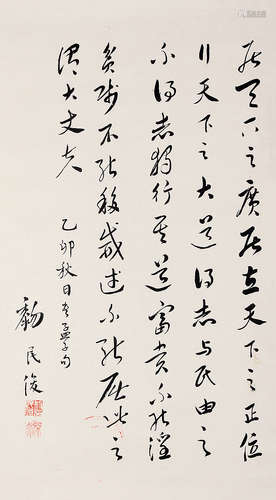 居天下之廣居立天下之正位
行天下之大道得志與民由之
不得志獨行其道富貴不能淫
貧賤不能移威武不能屈此之
謂大丈夫
乙卯秋日書孟子句
民